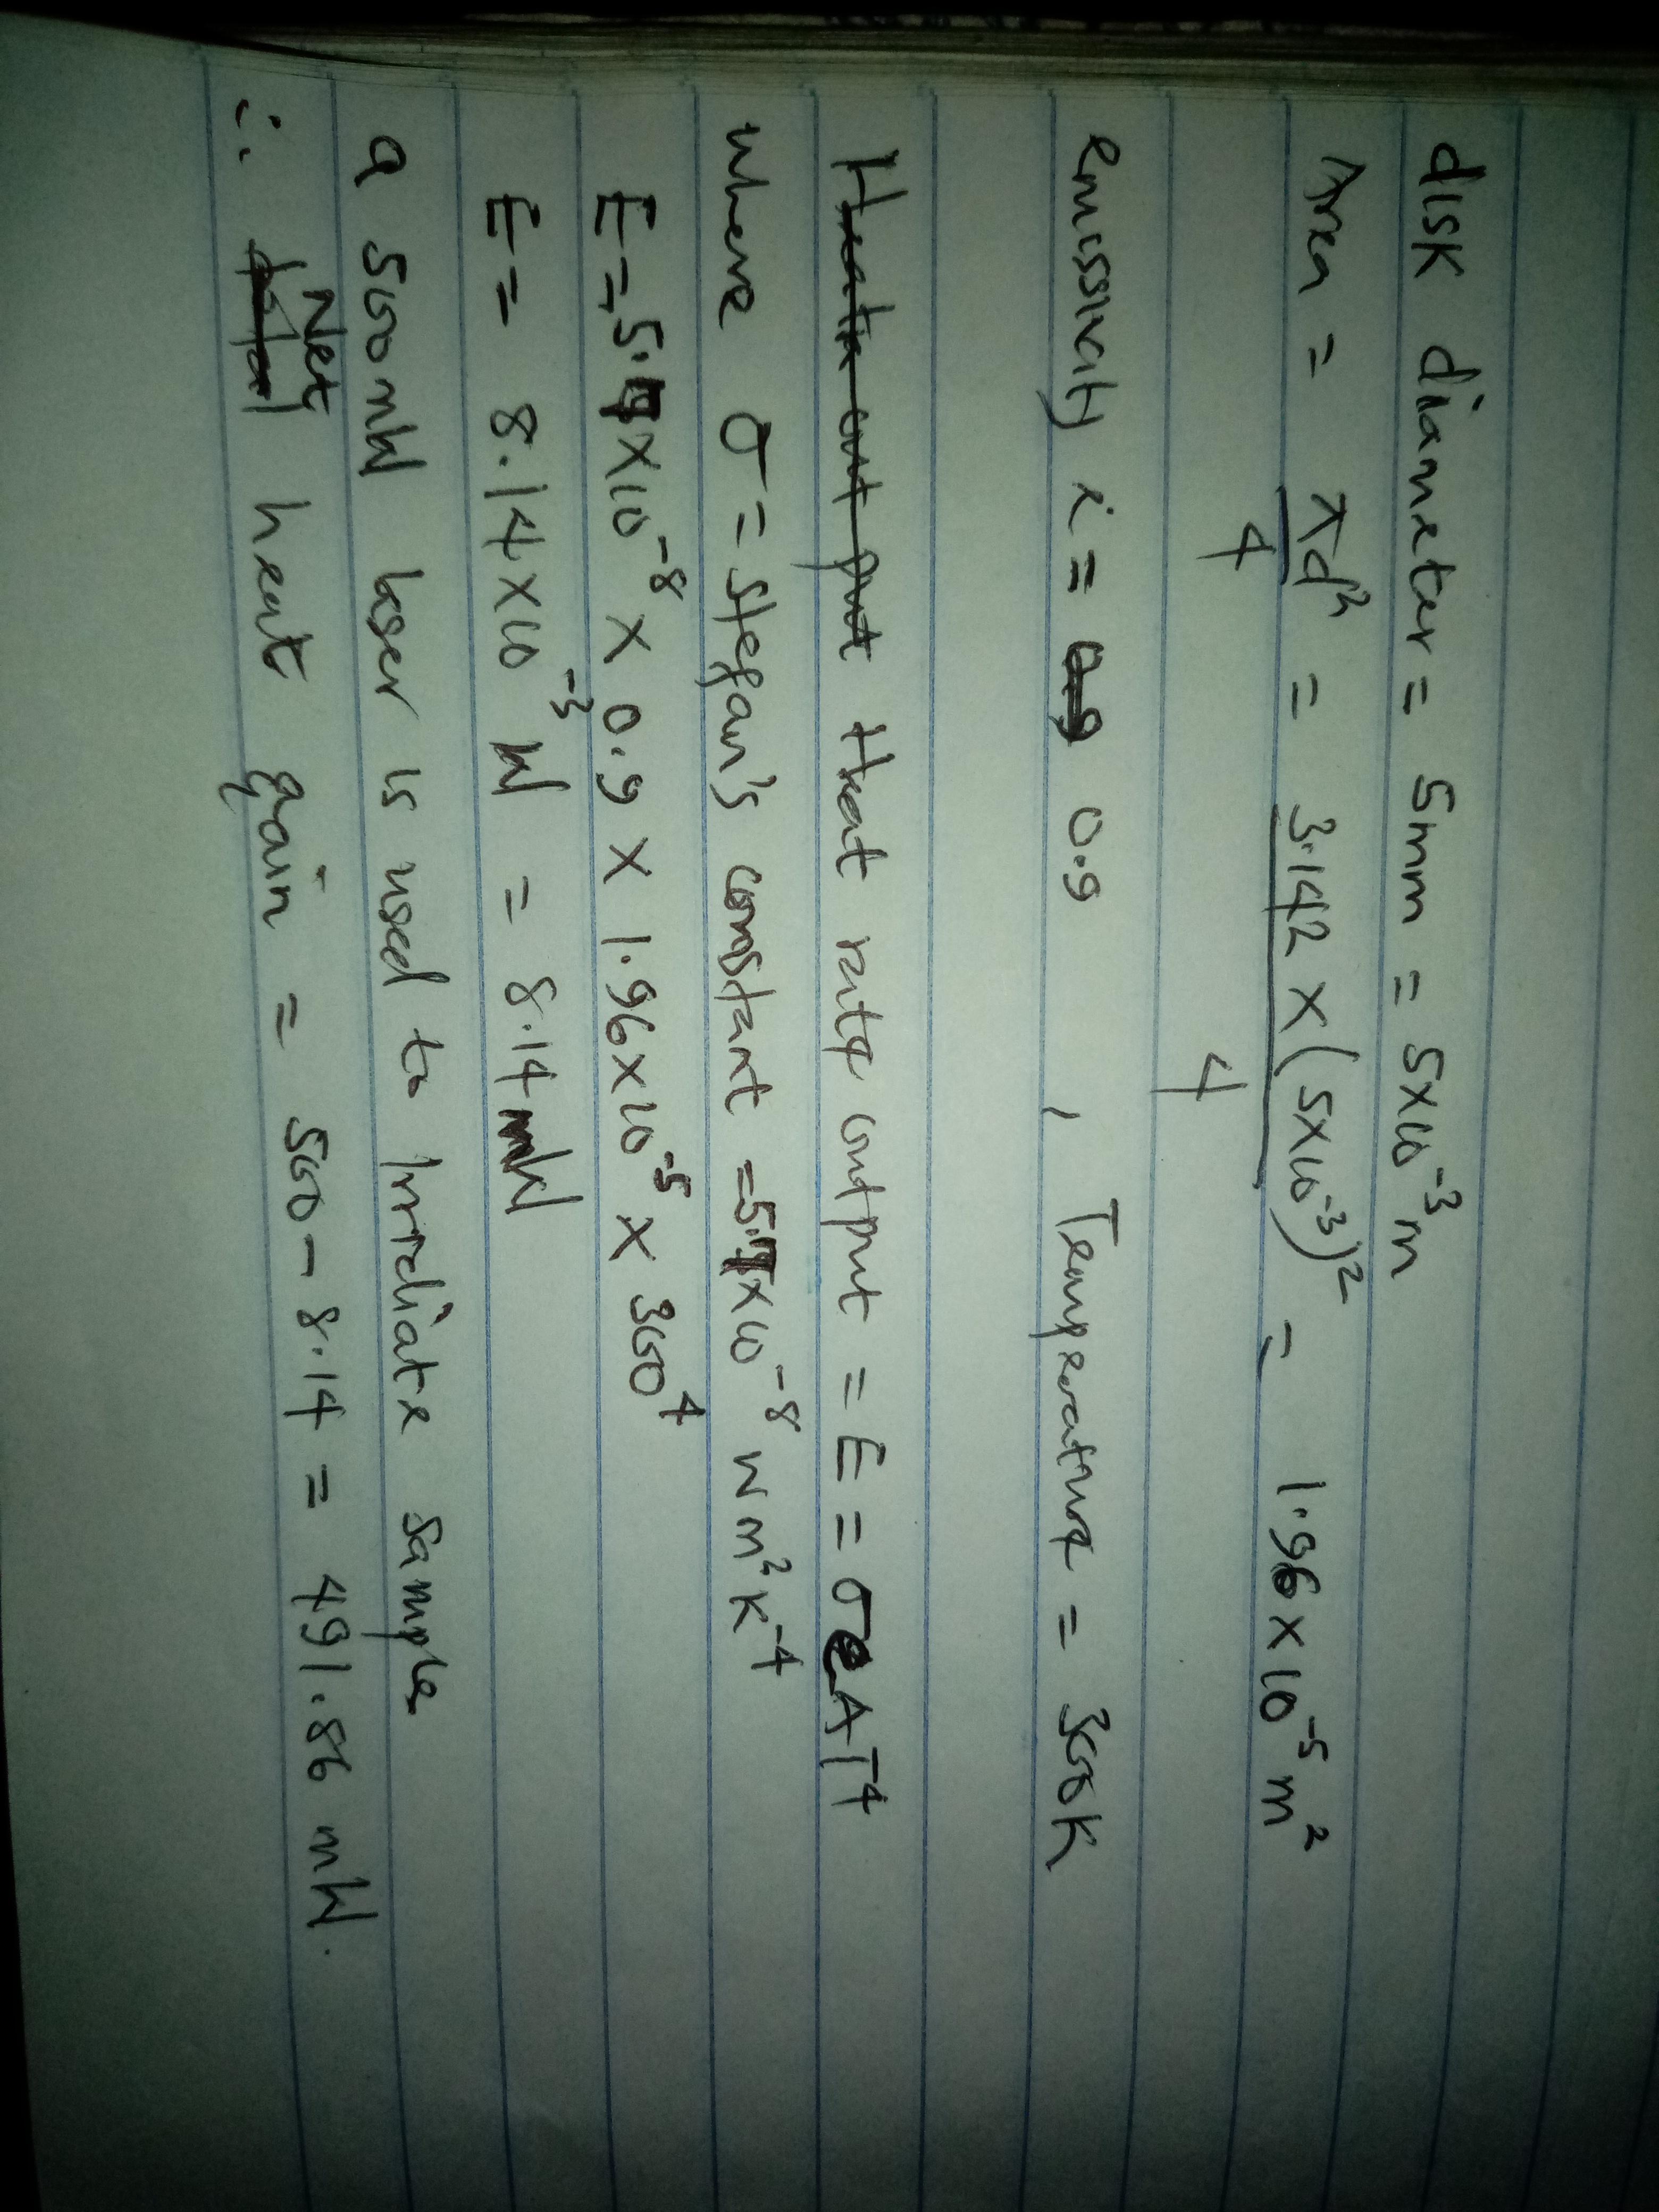 disk diameter = 5mm = 5x10⁻³m
Area = πd² / 4 = 3.142 x (5x10⁻³)² / 4 = 1.96x10⁻⁵ m²
emissivity i = 0.9 0.9 , Temperature = 300K
Heat out put Heat rate output = E = σeAT⁴
where σ = stefan's constant = 5.7x10⁻⁸ Wm²K⁻⁴
E = 5.7x10⁻⁸ x 0.9 x 1.96x10⁻⁵ x 300⁴
E = 8.14x10⁻³ W = 8.14mW
a 500mW laser is used to irradiate sample
∴ total Net heat gain = 500 - 8.14 = 491.86 mW.